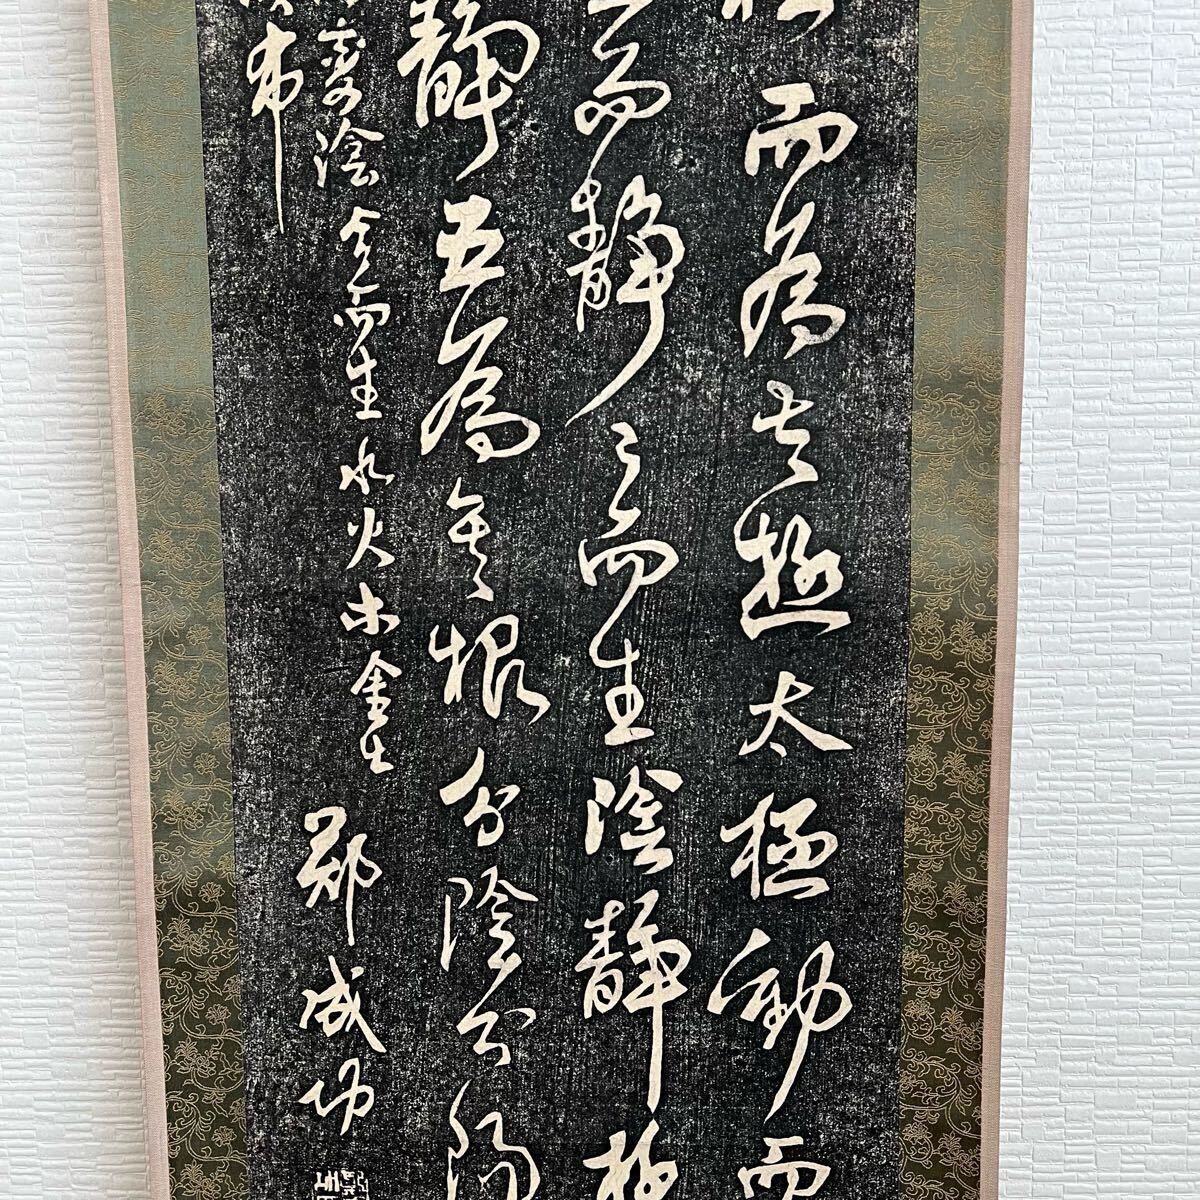 而為太極太極動而
而靜靜而生陰靜極
靜互為其根分陰分陽
變陰合而生水火木金土
布
鄭成功